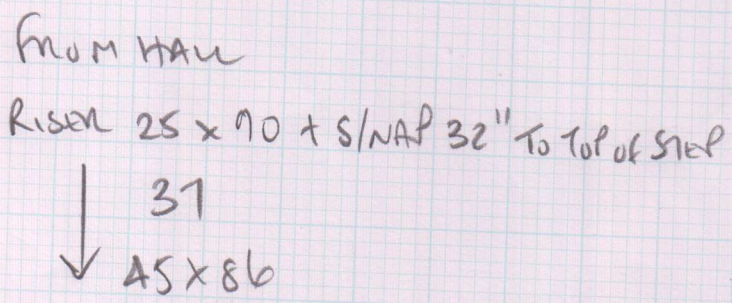 FROM HALL
RISER 25 x 90 + S/NAP 32" TO TOP OF STEP
↓ 31
45 x 86